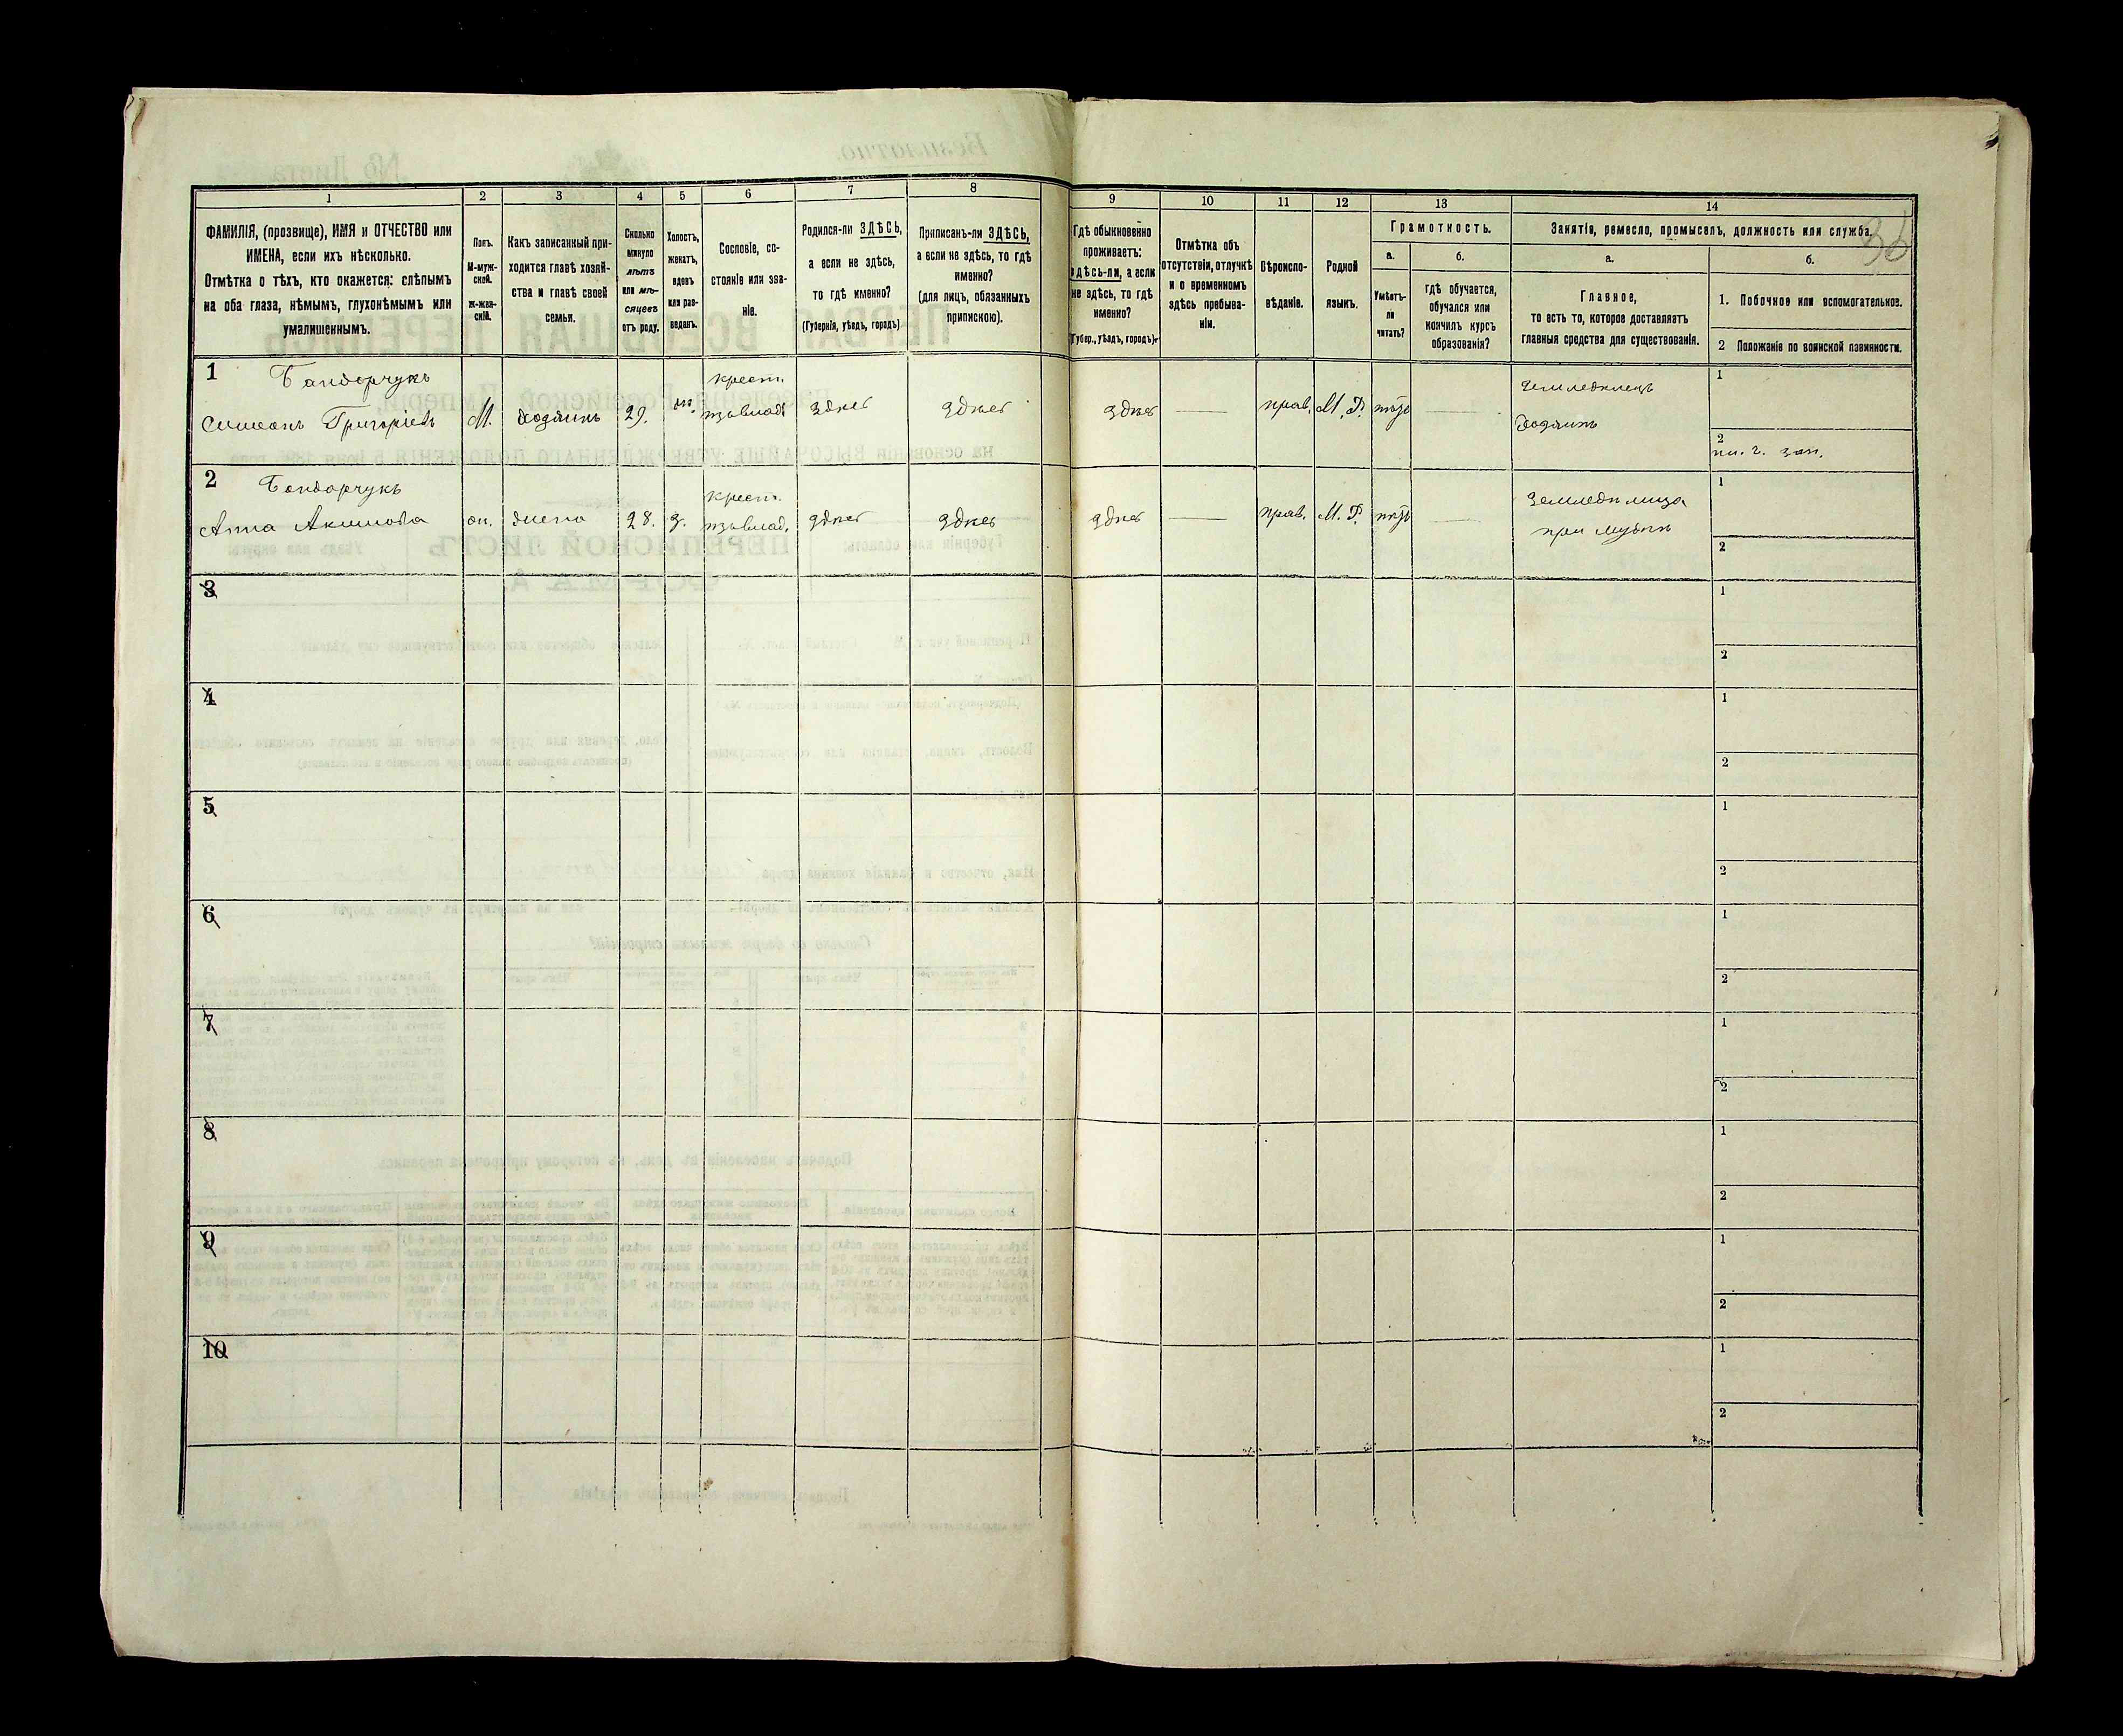 1
2
3
4
5
6
7
8
9
10
11
12
13
14
ФАМИЛІЯ, (прозвище), ИМЯ и ОТЧЕСТВО или
ИМЕНА, если ихъ нѣсколько.
Отмѣтка о тѣхъ, кто окажется: слѣпымъ
на оба глаза, нѣмымъ, глухонѣмымъ или
умалишеннымъ.
Полъ.
М-муж-
ской.
Ж-жен-
скій.
Какъ записанный при-
ходится главѣ хозяй-
ства и главѣ своей
семьи.
Сколько
минуло
лѣтъ
или мѣ-
сяцевъ
отъ роду.
Холостъ,
женатъ,
вдовъ
или раз-
веденъ.
Сословіе, со-
стояніе или зва-
ніе.
Родился-ли ЗДѢСЬ,
а если не здѣсь,
то гдѣ именно?
(Губернія, уѣздъ, городъ)
Приписанъ-ли ЗДѢСЬ,
а если не здѣсь, то гдѣ
именно?
(для лицъ, обязанныхъ
припискою).
Гдѣ обыкновенно
проживаетъ:
здѣсь-ли, а если
не здѣсь, то гдѣ
именно?
(Губер., уѣздъ, городъ)
Отмѣтка объ
отсутствіи, отлучкѣ
и о временномъ
здѣсь пребыва-
ніи.
Вѣроиспо-
вѣданіе.
Родной
языкъ.
Грамотность.
а.
Умѣетъ-
ли
читать?
б.
гдѣ обучается,
обучался или
кончилъ курсъ
образованія?
Занятіе, ремесло, промыселъ, должность или служба.
а.
Главное,
то есть то, которое доставляетъ
главныя средства для существованія.
б.
1. Побочное или вспомогательное.
2 Положеніе по воинской повинности.
1
Бондорчукъ
Симеонъ Григоріевъ
М.
хозяинъ
29.
крест.
здѣсь
здѣсь
здѣсь
прав.
М. Р.
нѣтъ
Земледѣлецъ
хозяинъ
1
2
зап.
2
Бондорчукъ
Анна Акимова
жена
28.
з.
крест.
здѣсь
здѣсь
здѣсь
прав.
М. Р.
нѣтъ
Земледѣлица
при мужѣ
1
2
3
1
2
4
1
2
5
1
2
6
1
2
7
1
2
8
1
2
9
1
2
10
1
2